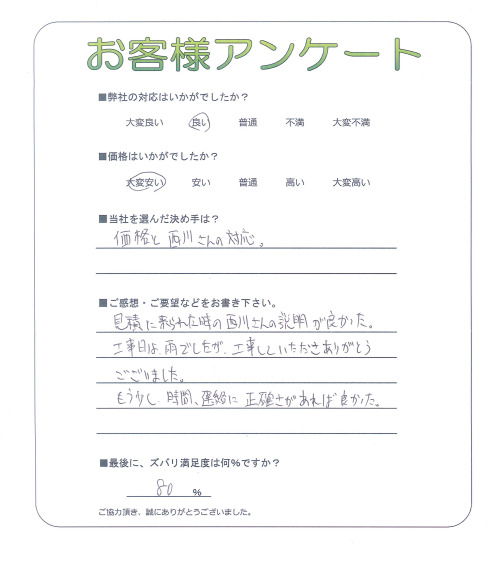 お客様アンケート
■弊社の対応はいかがでしたか？
大変良い 良い 普通 不満 大変不満
■価格はいかがでしたか？
大変安い 安い 普通 高い 大変高い
■当社を選んだ決め手は？
価格と西川さんの対応。
■ご感想・ご要望などをお書き下さい。
見積に来られた時の西川さんの説明が良かった。
工事日は、雨でしたが、工事していただきありがとう
ございました。
もう少し、時間、連絡に正確さがあれば良かった。
■最後に、ズバリ満足度は何％ですか？
80 ％
ご協力頂き、誠にありがとうございました。